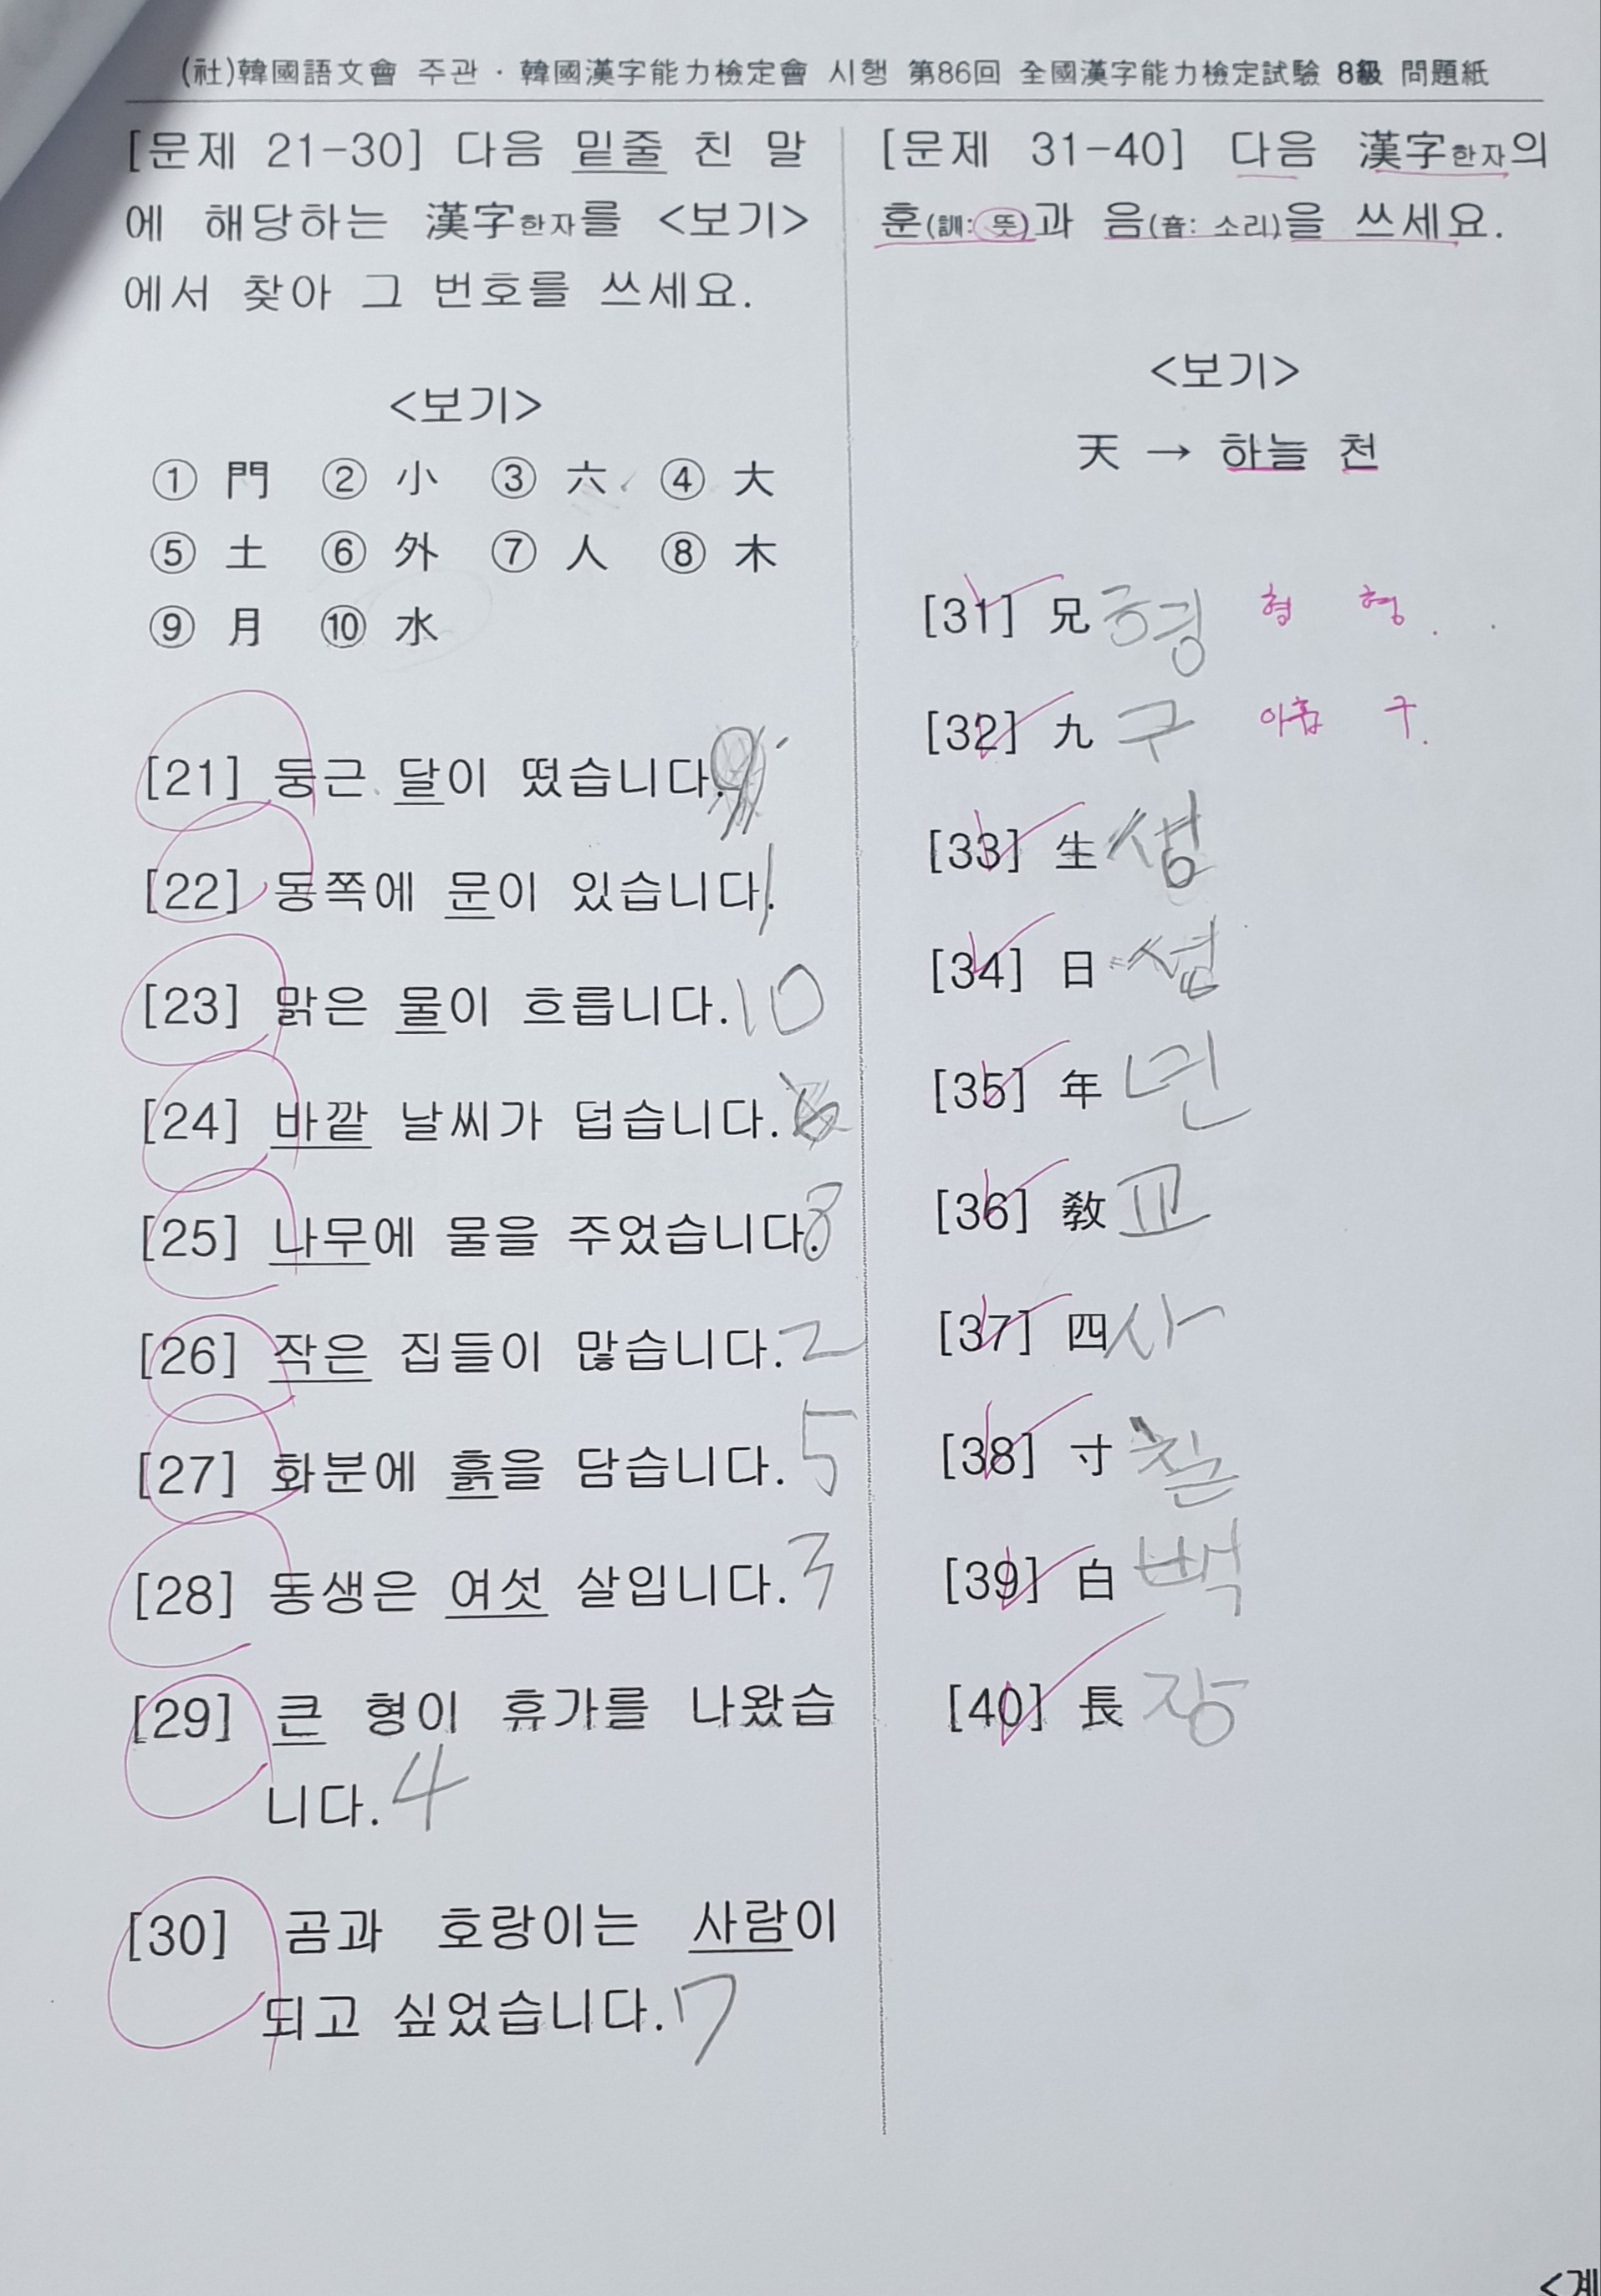 (社)韓國語文會 주관 · 韓國漢字能力檢定會 시행 第86回 全國漢字能力檢定試驗 8級 問題紙
[문제 21-30] 다음 밑줄 친 말
에 해당하는 漢字한자를 <보기>
에서 찾아 그 번호를 쓰세요.
<보기>
① 門 ② 小 ③ 六 ④ 大
⑤ 土 ⑥ 外 ⑦ 人 ⑧ 木
⑨ 月 ⑩ 水
[21] 둥근 달이 떴습니다. 9
[22] 동쪽에 문이 있습니다. 1
[23] 맑은 물이 흐릅니다. 10
[24] 바깥 날씨가 덥습니다. 6
[25] 나무에 물을 주었습니다. 8
[26] 작은 집들이 많습니다. 2
[27] 화분에 흙을 담습니다. 5
[28] 동생은 여섯 살입니다. 3
[29] 큰 형이 휴가를 나왔습
니다. 4
[30] 곰과 호랑이는 사람이
되고 싶었습니다. 7
[문제 31-40] 다음 漢字한자의
훈(訓: 뜻)과 음(音: 소리)을 쓰세요.
<보기>
天 → 하늘 천
[31] 兄 형 형 형.
[32] 九 구 아홉 구.
[33] 生
[34] 日
[35] 年 년
[36] 敎 교
[37] 四 사
[38] 寸
[39] 白 백
[40] 長 장
<계